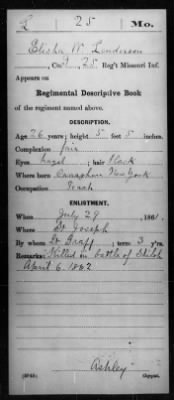 L 25 Mo.
Elisha W. Lenderson
Co. I, 25 Reg't Missouri Inf.
Appears on
Regimental Descriptive Book
of the regiment named above.
DESCRIPTION.
Age 26 years; height 5 feet 5 inches.
Complexion fair
Eyes hazel; hair black
Where born New York
Occupation Teach
ENLISTMENT.
When July 29, 1861.
Where St Joseph
By whom ; term 3 y'rs.
Remarks: Killed in battle of Shiloh
April 6, 1862
Ashley
Copyist.